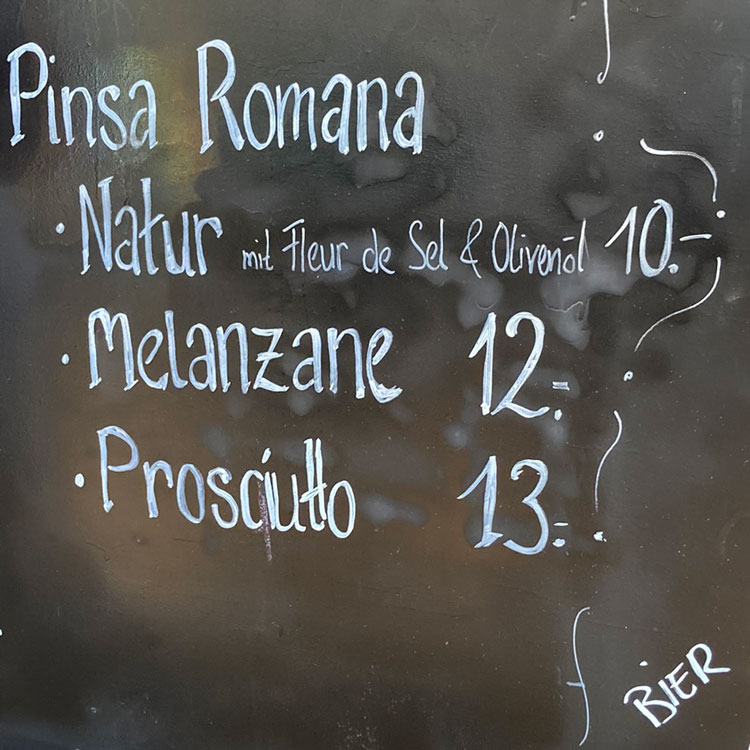 Pinsa Romana
· Natur mit Fleur de Sel & Olivenöl 10.-
· Melanzane 12.-
· Prosciutto 13.-
BIER